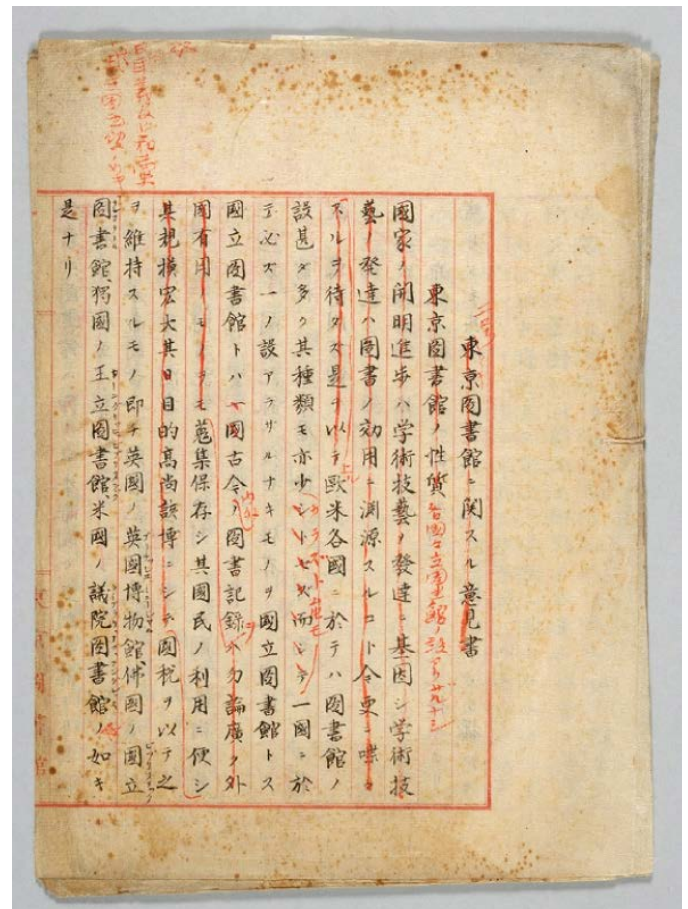 東京圕書館ニ関スル意見書
東京圕書館ノ性質
国家ノ開明進歩ハ学術技藝ノ發達ニ基因シ学術技
藝ノ發達ハ圕書ノ効用ニ淵源スルコト今更ニ喋々
スルヲ待タズ是ヲ以テ歐米各國ニ於テハ圕書館ノ
設甚ダ多ク其種類モ亦少シトセズ而シテ一國ニ於
テ必ズ一ノ設アラザルナキモノヲ國立圕書館トス
國立圕書館トハ一國古今ノ圕書記録ハ勿論廣ク外
國有用ノモノヲモ蒐集保存シ其國民ノ利用ニ便シ
其規模宏大其目的高尚該博ニシテ國税ヲ以テ之
ヲ維持スルモノ即チ英國ノ英國博物館佛國ノ國立
圕書館獨國ノ王立圕書館米國ノ議院圕書館ノ如キ
是ナリ